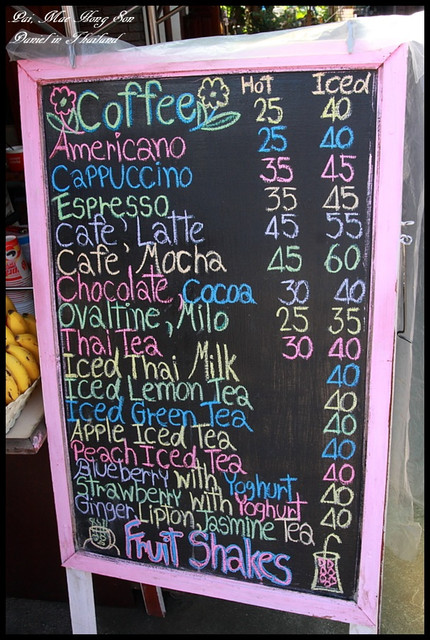 Pai, Mae Hong Son
Daniel in Thailand
Hot Iced
Coffee 25 40
Americano 25 40
Cappuccino 35 45
Espresso 35 45
Cafe' Latte 45 55
Cafe' Mocha 45 60
Chocolate, Cocoa 30 40
Ovaltine, Milo 25 35
Thai Tea 30 40
Iced Thai Milk 40
Iced Lemon Tea 40
Iced Green Tea 40
Apple Iced Tea 40
Peach Iced Tea 40
Blueberry with Yoghurt 40
Strawberry with Yoghurt 40
Ginger Lipton Jasmine Tea
Fruit Shakes